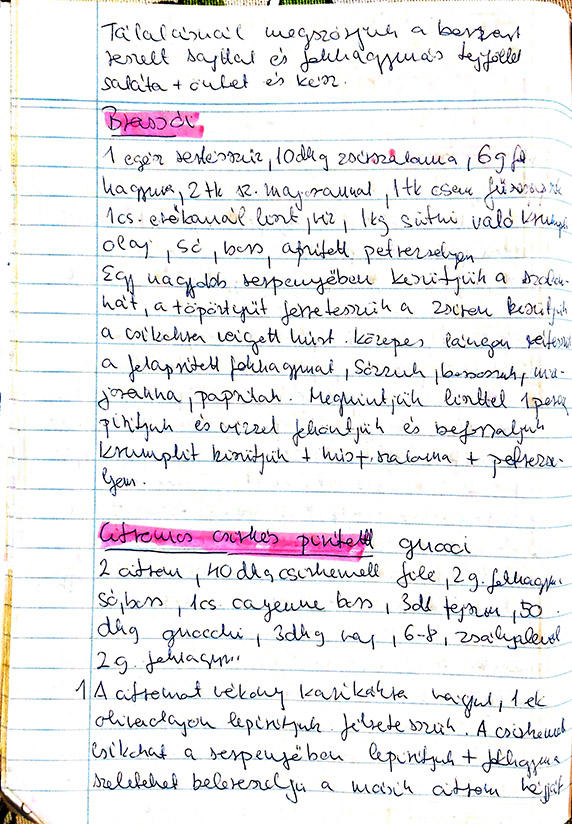 Tálalásnál megszórjuk a
reszelt sajttal és fokhagymás tejföllel
saláta + önlet és kész.
Brassói
1 egész sertésszűz, 10 dkg zsírszalonna, 6 g fok
hagyma, 2 tk sz. majoranna, 1 tk csem
1 cs. evőkanál liszt, víz, 1 kg sütni való krumpli
olaj, só, bors, aprított petrezselyem
Egy nagyobb serpenyőben kisütjük a szalon-
nát, a töpörtyűt félretesszük a zsíron kisütjük
a csíkokra vágott húst. közepes lángon
a felaprított fokhagymát, sózzuk, borsozzuk, ma-
joranna, paprika. Meghintjük liszttel 1 perc
pirítjuk és vízzel felöntjük és beforraljuk
krumplit kisütjük + hús + szalonna + petrezse-
lyem.
Citromos csirkés pirított gnocci
2 citrom, 40 dkg csirkemell filé, 2 g. fokhagyma
só, bors, 1 cs. cayenne bors, 3 dl tejszín, 50
dkg gnocchi, 3 dkg vaj, 6-8, zsályalevél
2 g. fokhagyma
1 A citromot vékony karikákra vágjuk, 1 ek
olivaolajon lepirítjuk félretesszük. A csirkemell
csíkokat a serpenyőben lepirítjuk + fokhagyma
szeleteket belereszeljük a másik citrom héját